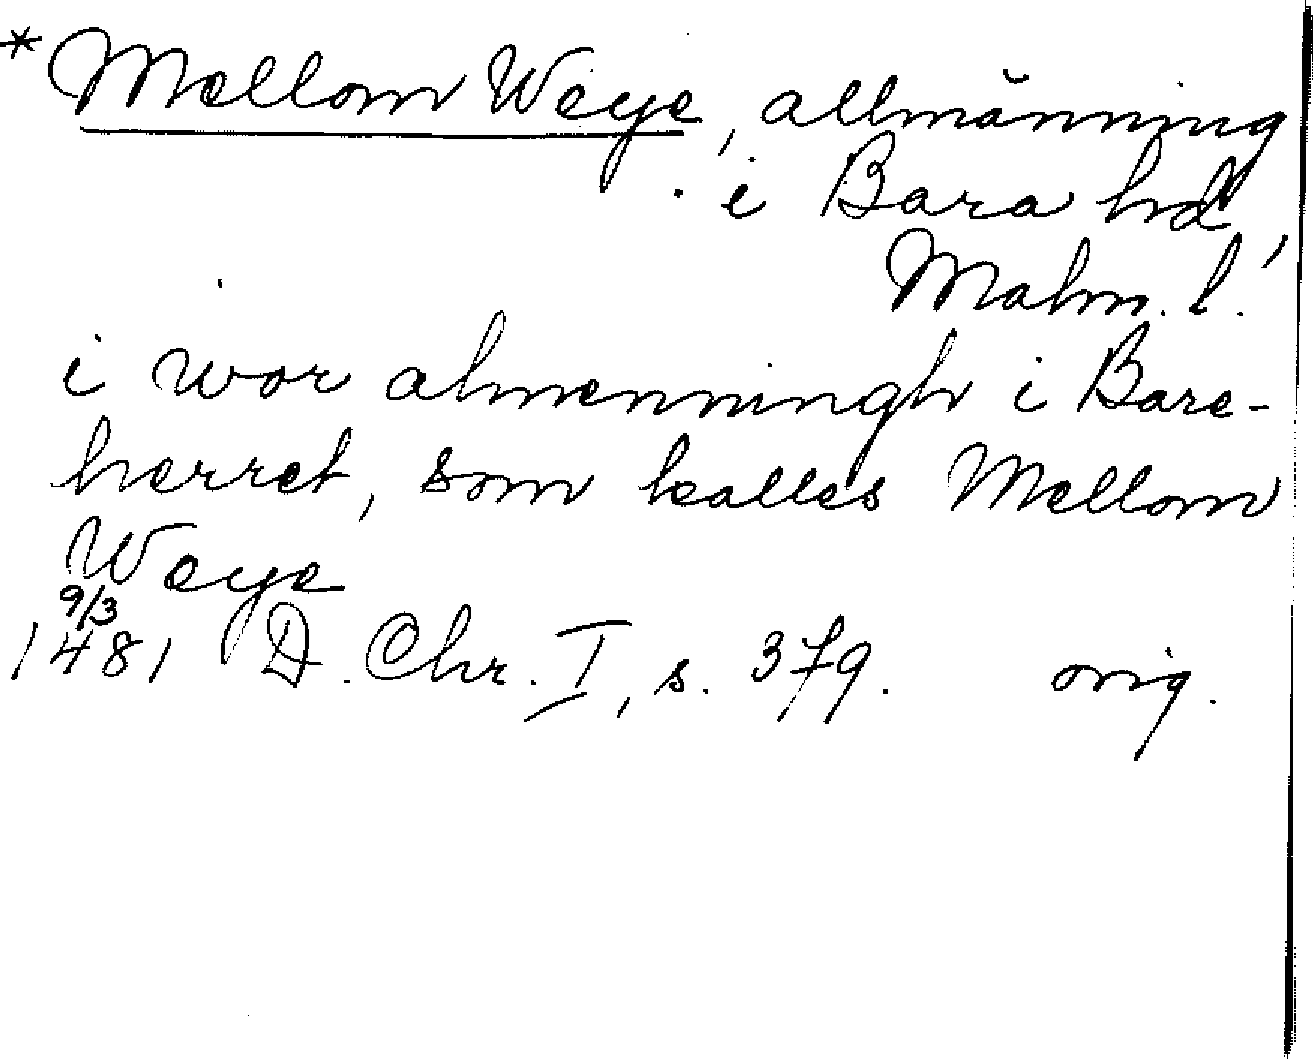 *Mellom Weye, allmänning
i Bara hd,
Malm. l.
i wor almenningh i Bare-
herret, som kalles Mellom
Weye
9/3
1481 D. Chr. I, s. 379. orig.